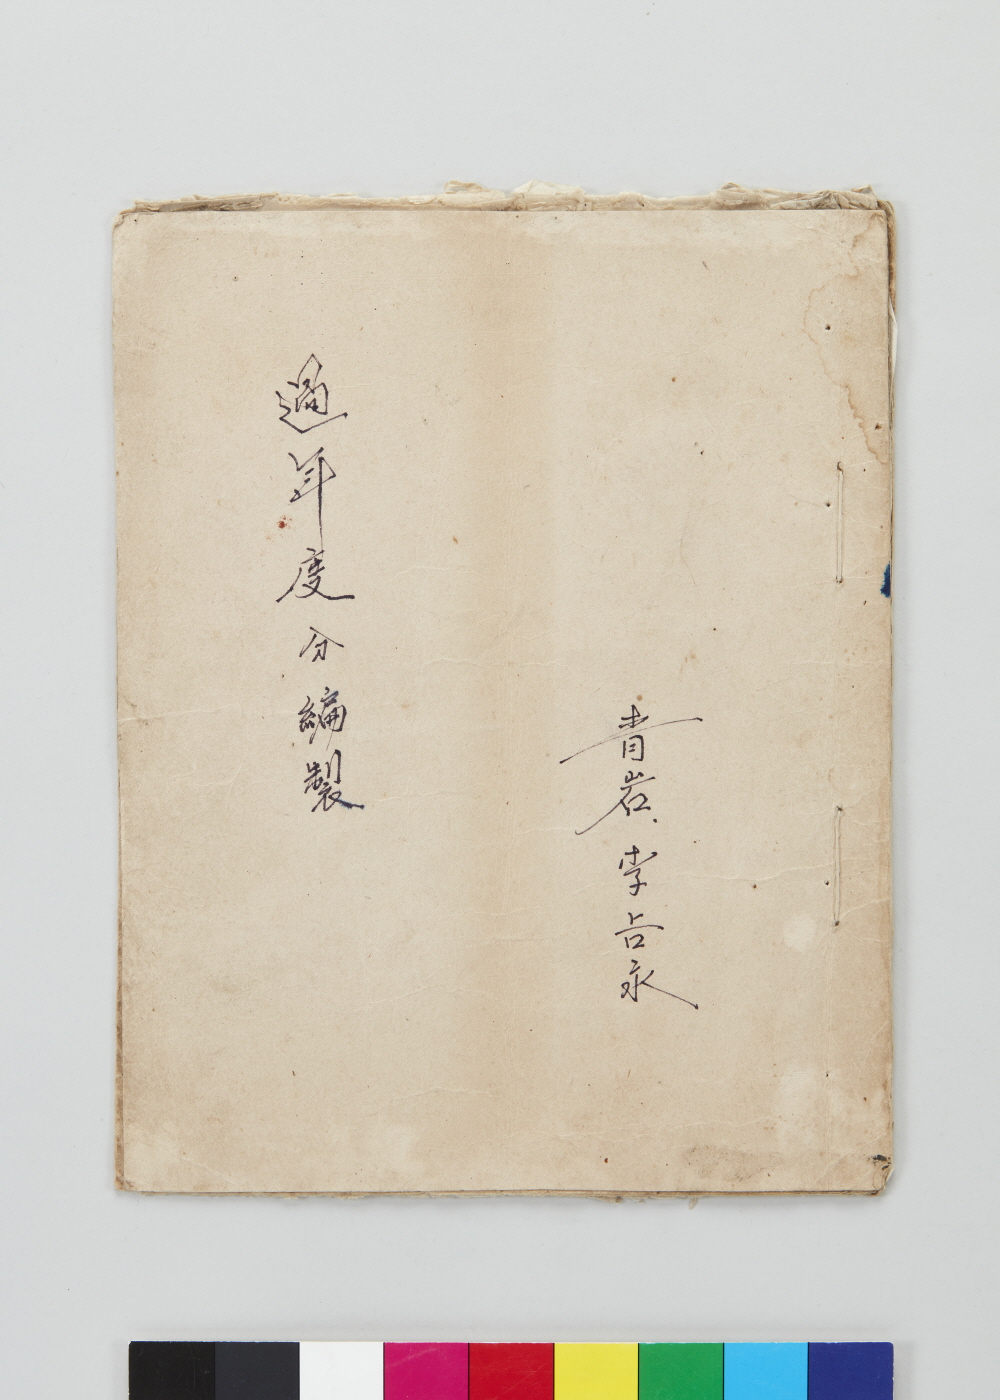 青岩 李占永
過年度分編製